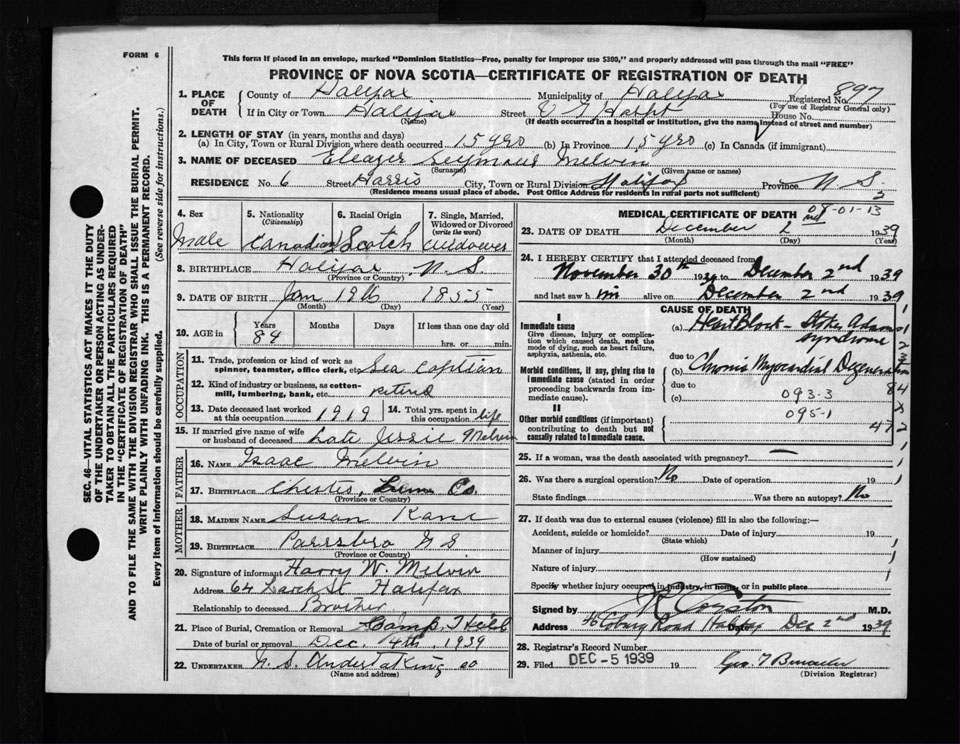 FORM 6
This form if placed in an envelope, marked "Dominion Statistics—Free, penalty for improper use $300," and properly addressed will pass through the mail "FREE"
PROVINCE OF NOVA SCOTIA—CERTIFICATE OF REGISTRATION OF DEATH
1. PLACE OF DEATH
County of Halifax Municipality of Halifax Registered No. 897
(For use of Registrar General only)
If in City or Town Halifax Street V G Hospt House No.
(Name) (If death occurred in a hospital or institution, give the name instead of street and number)
2. LENGTH OF STAY (in years, months and days)
(a) In City, Town or Rural Division where death occurred 15 yrs (b) In Province 15 yrs (c) In Canada (if immigrant)
3. NAME OF DECEASED Eleazer Seymour Melvin
(Surname) (Given name or names)
RESIDENCE No. 6 Street Harris City, Town or Rural Division Halifax Province N S
(Residence means usual place of abode. Post Office Address for residents in rural parts not sufficient)
2
4. Sex
Male
5. Nationality (Citizenship)
Canadian
6. Racial Origin
Scotch
7. Single, Married, Widowed or Divorced (write the word)
widower
8. BIRTHPLACE Halifax N. S.
(Province or Country)
9. DATE OF BIRTH Jan 19th 1855
(Month) (Day) (Year)
10. AGE in Years Months Days If less than one day old
84 hrs. or min.
OCCUPATION
11. Trade, profession or kind of work as spinner, teamster, office clerk, etc. Sea Capitian
12. Kind of industry or business, as cotton-mill, lumbering, bank, etc. retired
13. Date deceased last worked at this occupation 1919 14. Total yrs. spent in this occupation life
15. If married give name of wife or husband of deceased Late Jessie Melvin
FATHER
16. NAME Isaac Melvin
17. BIRTHPLACE Chester, Lun Co.
(Province or Country)
MOTHER
18. MAIDEN NAME Susan Kane
19. BIRTHPLACE Parrsboro N S.
(Province or Country)
20. Signature of informant Harry W. Melvin
Address 64 Larch St Halifax
Relationship to deceased Brother
21. Place of Burial, Cremation or Removal Camp Hill
Date of burial or removal Dec. 4th. 1939
22. UNDERTAKER N. S. UnderTaking co
(Name and address)
MEDICAL CERTIFICATE OF DEATH 07-01-13
23. DATE OF DEATH December 2nd 1939
(Month) (Day) (Year)
24. I HEREBY CERTIFY that I attended deceased from
November 30th 1939 to December 2nd 1939
and last saw him alive on December 2nd 1939
CAUSE OF DEATH
I
Immediate cause
Give disease, injury or complication which caused death, not the mode of dying, such as heart failure, asphyxia, asthenia, etc.
(a) Heart Block – Stokes Adams Syndrome
due to
Morbid conditions, if any, giving rise to immediate cause (stated in order proceeding backwards from immediate cause).
(b) Chronic Myocardial Degeneration
due to
(c) 093-3
095-1
II
Other morbid conditions (if important) contributing to death but not causally related to immediate cause.
84
47
25. If a woman, was the death associated with pregnancy?
26. Was there a surgical operation? No Date of operation 19
State findings Was there an autopsy? No
27. If death was due to external causes (violence) fill in also the following:—
Accident, suicide or homicide? Date of injury 19
(State which)
Manner of injury
(How sustained)
Nature of injury
Specify whether injury occurred in industry, in home, or in public place
Signed by M.D.
Address Coburg Road Halifax Date Dec 2nd 1939
28. Registrar's Record Number
29. Filed DEC - 5 1939 19
(Division Registrar)
SEC. 46—VITAL STATISTICS ACT MAKES IT THE DUTY
OF THE UNDERTAKER OR PERSON ACTING AS UNDER-
TAKER TO OBTAIN ALL THE PARTICULARS REQUIRED
IN THE "CERTIFICATE OF REGISTRATION OF DEATH"
AND TO FILE THE SAME WITH THE DIVISION REGISTRAR WHO SHALL ISSUE THE BURIAL PERMIT.
WRITE PLAINLY WITH UNFADING INK. THIS IS A PERMANENT RECORD.
Every item of information should be carefully supplied. (See reverse side for instructions.)